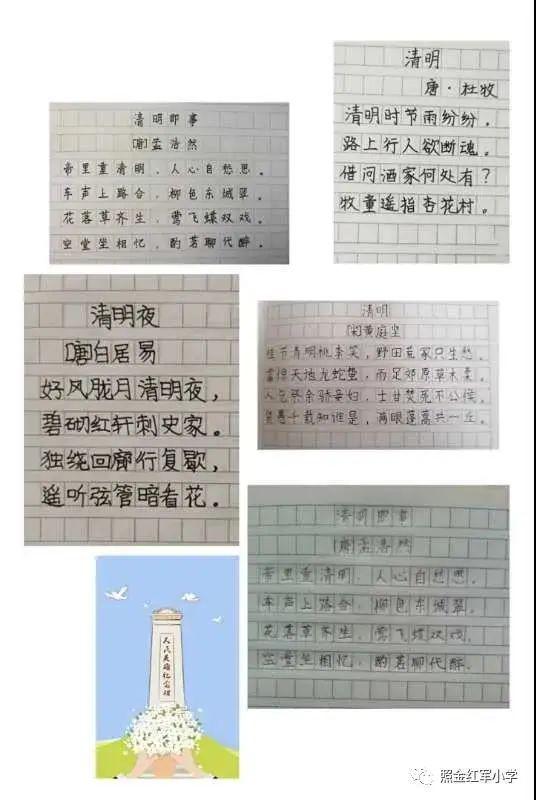 清明即事
[唐]孟浩然
帝里重清明,人心自愁思。
车声上路合,柳色东城翠。
花落草齐生,莺飞蝶双戏。
空堂坐相忆,酌茗聊代醉。
清明
唐·杜牧
清明时节雨纷纷。
路上行人欲断魂。
借问酒家何处有?
牧童遥指杏花村。
清明夜
[唐]白居易
好风胧月清明夜,
碧砌红轩刺史家。
独绕回廊行复歇,
遥听弦管暗看花。
清明
[宋]黄庭坚
佳节清明桃李笑,野田荒冢只生愁。
雷惊天地龙蛇蛰,雨足郊原草木柔。
人乞祭余骄妾妇,士甘焚死不公侯。
贤愚千载知谁是,满眼蓬蒿共一丘。
清明即事
[唐]孟浩然
帝里重清明,人心自愁思。
车声上路合,柳色东城翠。
花落草齐生,莺飞蝶双戏。
空堂坐相忆,酌茗聊代醉。
人民英雄纪念碑
照金红军小学